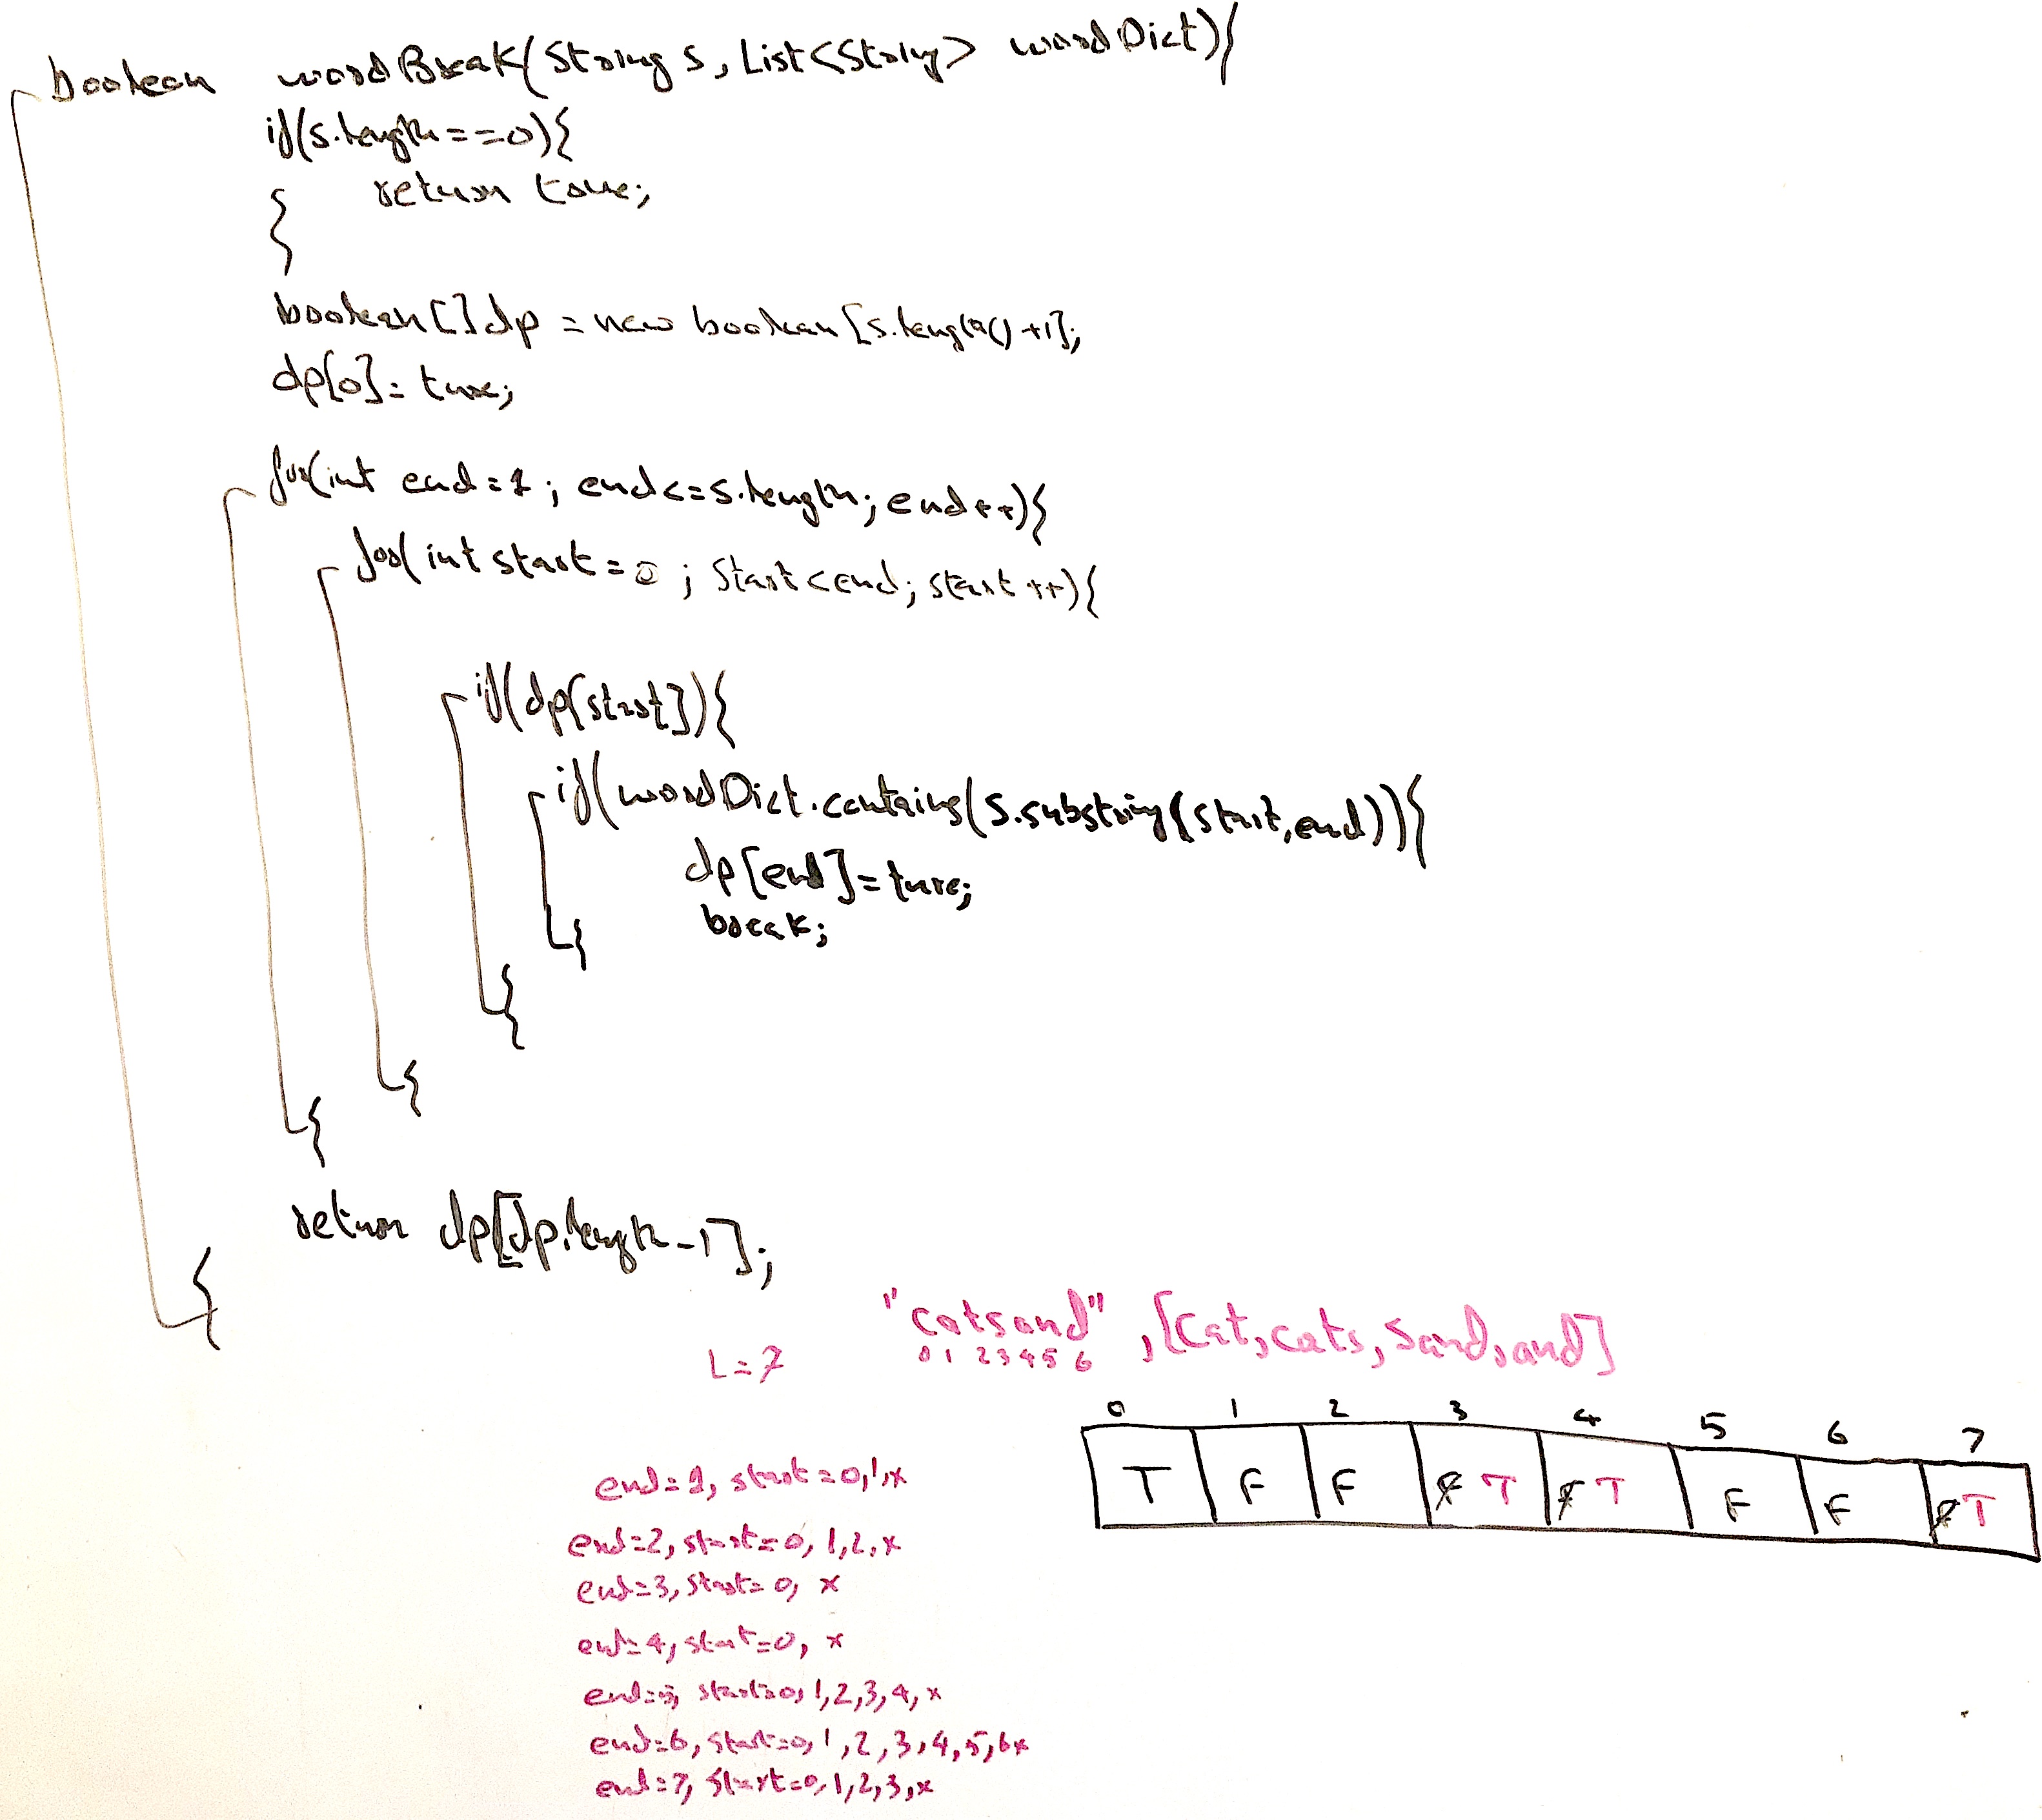 boolean wordBreak(String s, List<String> wordDict){
if(s.length==0){
return true;
}
boolean[] dp = new boolean[s.length()+1];
dp[0]= true;
for(int end=1; end<=s.length; end++){
for(int start=0; start<end; start++){
if(dp[start]){
if(wordDict.contains(s.substring(start,end))){
dp[end]=true;
break;
}
}
}
}
return dp[dp.length-1];
}
"catsand", [cat,cats,sand,and]
L=7 0 1 2 3 4 5 6
0 1 2 3 4 5 6 7
T F F F T F T F F F T
end=1, start=0,1,x
end=2, start=0, 1,2,x
end=3, start=0, x
end=4, start=0, x
end=5, start=0, 1,2,3,4,x
end=6, start=0, 1,2,3,4,5,6x
end=7, start=0,1,2,3,x